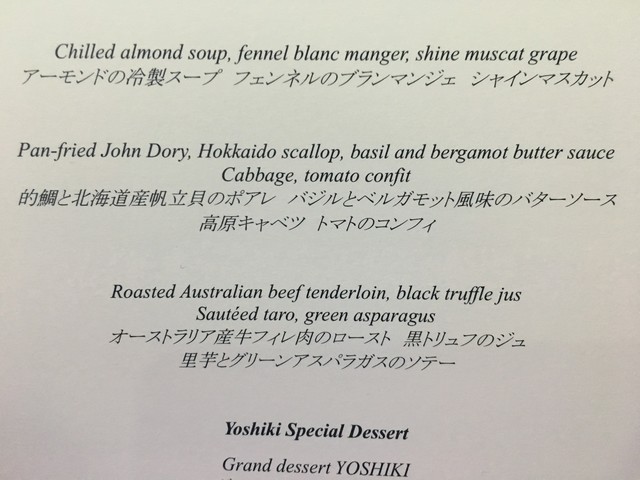 Chilled almond soup, fennel blanc manger, shine muscat grape
アーモンドの冷製スープ　フェンネルのブランマンジェ　シャインマスカット
Pan-fried John Dory, Hokkaido scallop, basil and bergamot butter sauce
Cabbage, tomato confit
的鯛と北海道産帆立貝のポアレ　バジルとベルガモット風味のバターソース
高原キャベツ　トマトのコンフィ
Roasted Australian beef tenderloin, black truffle jus
Sautéed taro, green asparagus
オーストラリア産牛フィレ肉のロースト　黒トリュフのジュ
里芋とグリーンアスパラガスのソテー
Yoshiki Special Dessert
Grand dessert YOSHIKI